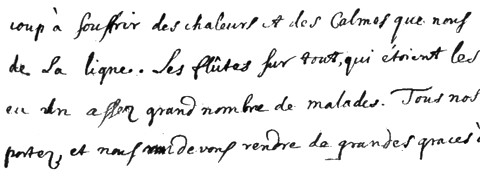 coup à souffrir des chaleurs et des Calmes que nous
de La ligne. Les flûtes sur tout, qui étoient les
eu un assez grand nombre de malades. Tous nos
portez, et nous devons rendre de grandes graces à